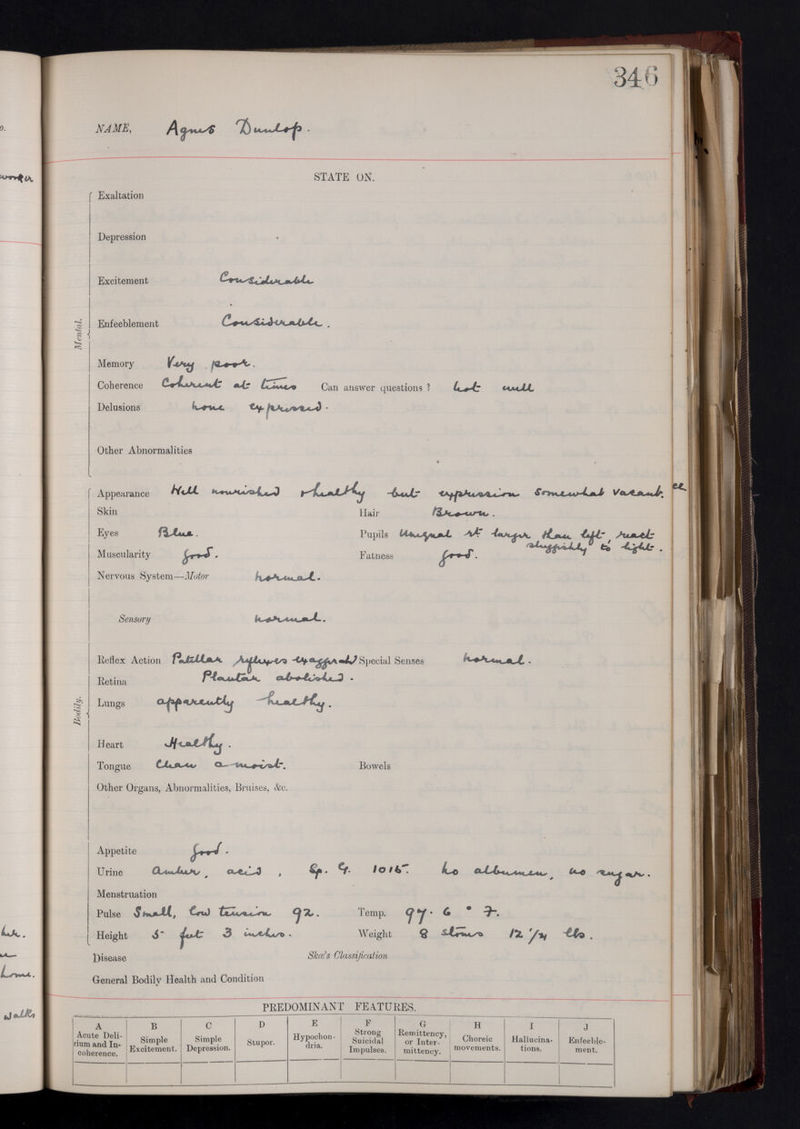 346
NAME, Agnes Dunlop.
STATE ON.
Mental.
Exaltation
Depression
Excitement Considerable
Enfeeblement Considerable.
Memory Very poor.
Coherence Coherent at times Can answer questions? not well
Delusions none expressed.
Other Abnormalities
Bodily.
Appearance Well nourished & healthy but expression somewhat vacant.
Skin Hair Brown.
Eyes Blue. Pupils Unequal Rt larger than left, react
sluggishly to light.
Muscularity good. Fatness good.
Nervous System—Motor normal.
Sensory normal.
Reflex Action Patellar reflexes exaggerated Special Senses normal.
Retina Plantar abolished.
Lungs apparently healthy.
Heart Healthy.
Tongue Clean & moist. Bowels
Other Organs, Abnormalities, Bruises, &c.
Appetite good.
Urine Amber, acid, Sp. G. 1015. no albumen, no sugar.
Menstruation
Pulse Small, low tension 92. Temp. 97.6° F.
Height 5 feet 3 inches. Weight 8 stones 12 1/4 lbs.
Disease Skae's Classification
General Bodily Health and Condition
PREDOMINANT FEATURES.
A B C D E F G H I J
Acute Delirium and Incoherence. Simple Excitement. Simple Depression. Stupor. Hypochondria. Strong Suicidal Impulses. Remittency, or Intermittency. Choreic movements. Hallucinations. Enfeeblement.